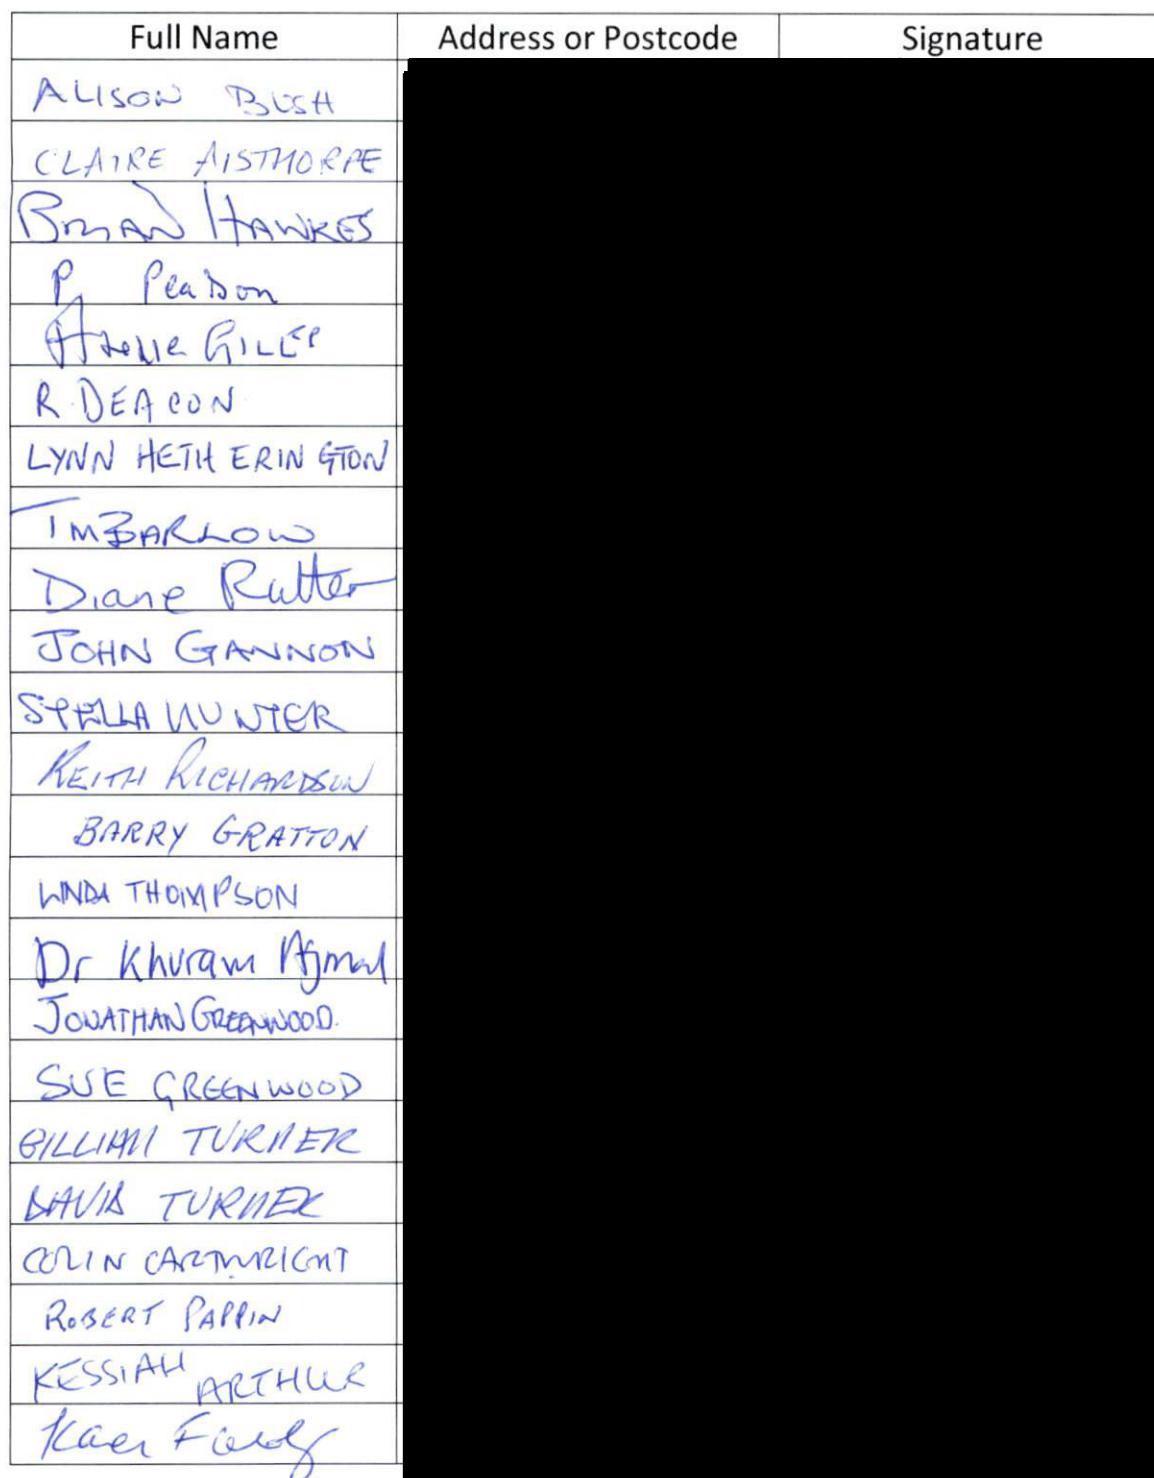 Full Name Address or Postcode Signature
ALISON BUSH
CLAIRE AISTHORPE
BRIAN HAWKES
P
R. DEACON
LYNN HETHERINGTON
T M BARLOW
Diane Rutter
JOHN GANNON
STELLA HUNTER
KEITH RICHARDSON
BARRY GRATTON
LINDA THOMPSON
Dr Khuram Ajmal
JONATHAN GREENWOOD.
SUE GREENWOOD
GILLIAN TURNER
DAVID TURNER
COLIN CARTWRIGHT
ROBERT PAPPIN
KESSIAH ARTHUR